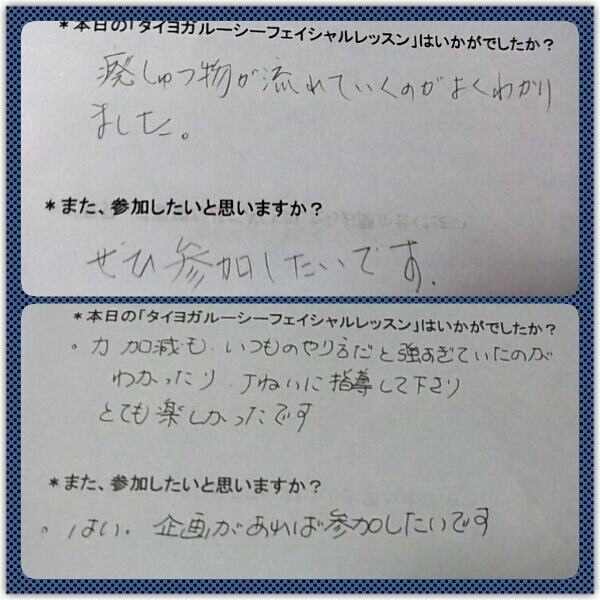 *本日の「タイヨガルーシーフェイシャルレッスン」はいかがでしたか?
廃しゅつ物が流れていくのがよくわかり
ました。
*また、参加したいと思いますか?
ぜひ参加したいです.
*本日の「タイヨガルーシーフェイシャルレッスン」はいかがでしたか?
。力加減も、いつものやり方だと強すぎていたのが
わかったり、丁ねいに指導して下さり
とても楽しかったです
*また、参加したいと思いますか?
。はい、企画があれば参加したいです